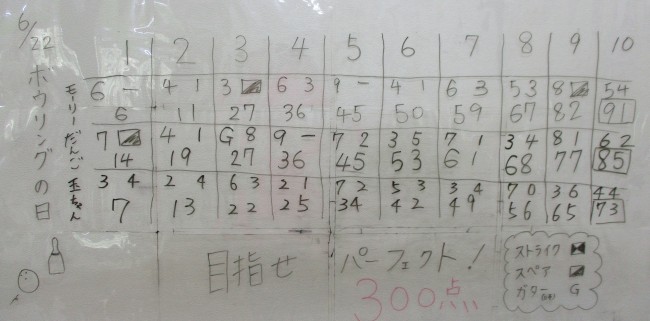 6/22 ボウリングの日
1 2 3 4 5 6 7 8 9 10
モーリー
6 - 4 1 3 ◪ 6 3 9 - 4 1 6 3 5 3 8 ◪ 5 4
6 11 27 36 45 50 59 67 82 91
だんご
7 ◪ 4 1 G 8 9 - 7 2 3 5 7 1 3 4 8 1 6 2
14 19 27 36 45 53 61 68 77 85
玉ちゃん
3 4 2 4 6 3 2 1 7 2 5 3 3 4 7 0 3 6 4 4
7 13 22 25 34 42 49 56 65 73
目指せ パーフェクト!
300点
ストライク
スペア ◪
ガター G